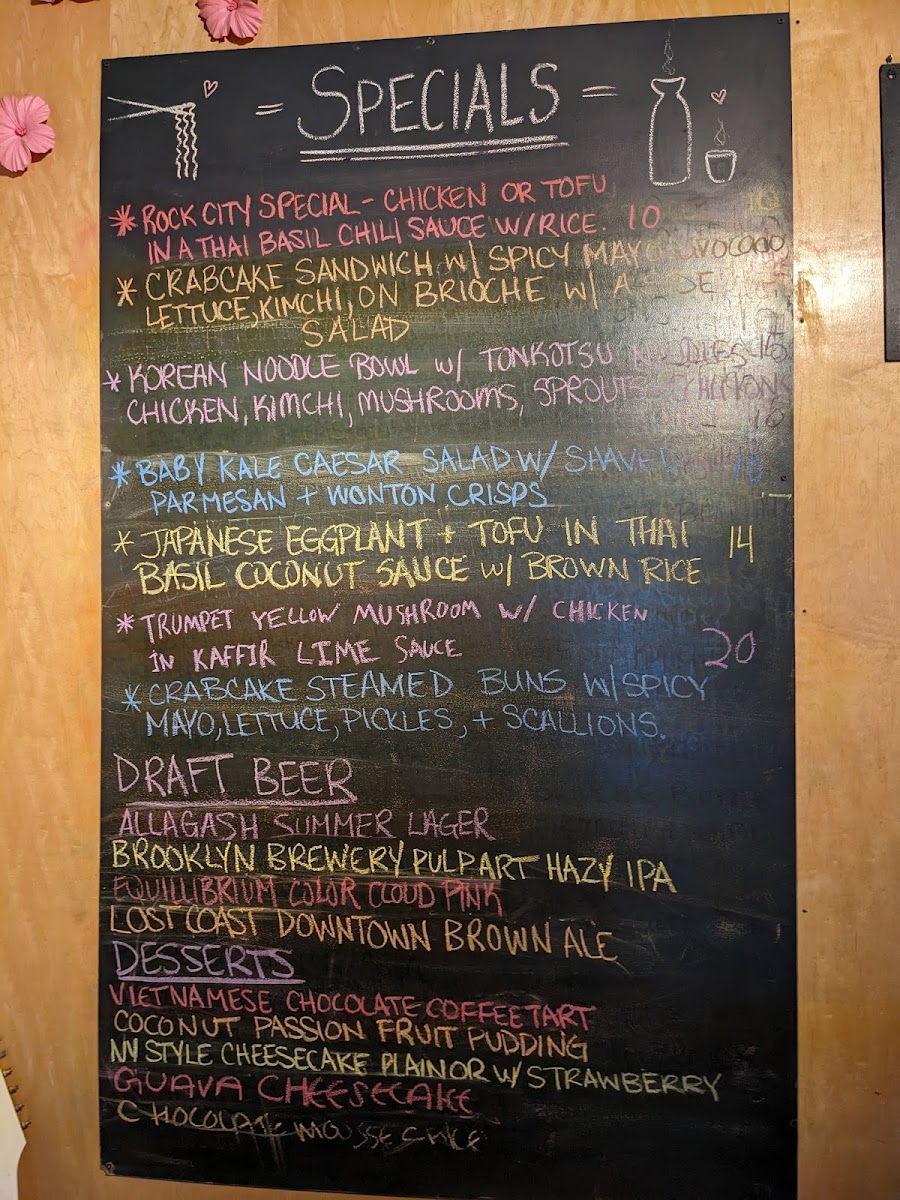 = SPECIALS =
* ROCK CITY SPECIAL - CHICKEN OR TOFU
IN A THAI BASIL CHILI SAUCE W/ RICE. 10
* CRABCAKE SANDWICH W/ SPICY MAYO, AVOCADO,
LETTUCE, KIMCHI, ON BRIOCHE W/ A SIDE
SALAD
* KOREAN NOODLE BOWL W/ TONKOTSU NOODLES
CHICKEN, KIMCHI, MUSHROOMS, SPROUTS
* BABY KALE CAESAR SALAD W/ SHAVED
PARMESAN + WONTON CRISPS
* JAPANESE EGGPLANT + TOFU IN THAI 14
BASIL COCONUT SAUCE W/ BROWN RICE
* TRUMPET YELLOW MUSHROOM W/ CHICKEN
IN KAFFIR LIME SAUCE 20
* CRABCAKE STEAMED BUNS W/ SPICY
MAYO, LETTUCE, PICKLES, + SCALLIONS.
DRAFT BEER
ALLAGASH SUMMER LAGER
BROOKLYN BREWERY PULP ART HAZY IPA
EQUILLIBRIUM COLOR CLOUD PINK
LOST COAST DOWNTOWN BROWN ALE
DESSERTS
VIETNAMESE CHOCOLATE COFFEE TART
COCONUT PASSION FRUIT PUDDING
NY STYLE CHEESECAKE PLAIN OR W/ STRAWBERRY
GUAVA CHEESECAKE
CHOCOLATE MOUSSE CAKE